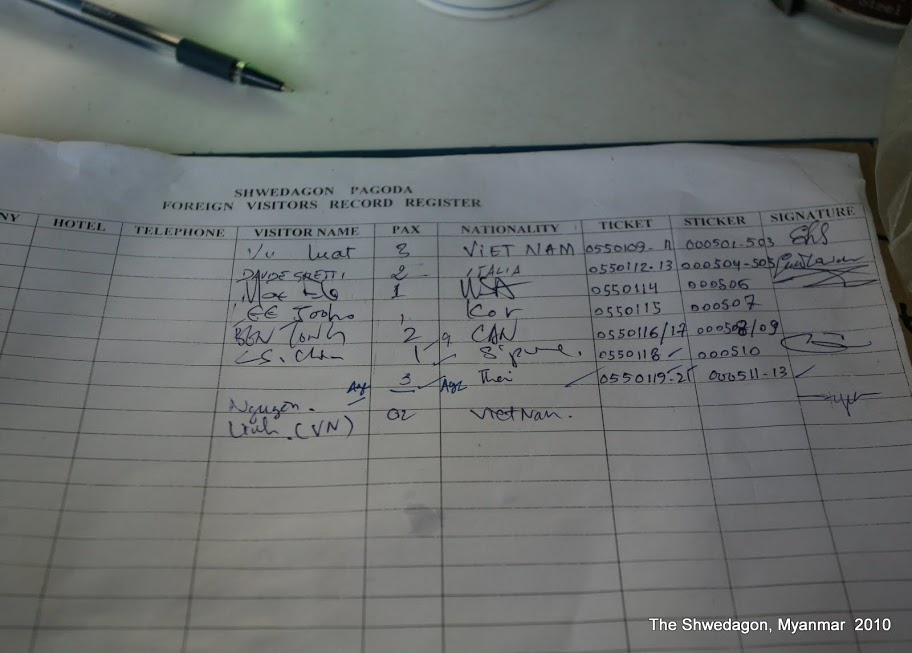 SHWEDAGON PAGODA
FOREIGN VISITORS RECORD REGISTER
NY HOTEL TELEPHONE VISITOR NAME PAX NATIONALITY TICKET STICKER SIGNATURE
Vu Luat 3 VIET NAM 0550109-11 000501-503
DAVIDE 2 ITALIA 0550112-13 000504-505
1 USA 0550114 000506
Kor 0550115 000507
BEN 2 CAN 0550116/17 000508/09
1 S'pore. 0550118 000510
3 Thai 0550119-21 000511-13
Nguyen.
(VN) 02 VietNam.
The Shwedagon, Myanmar 2010